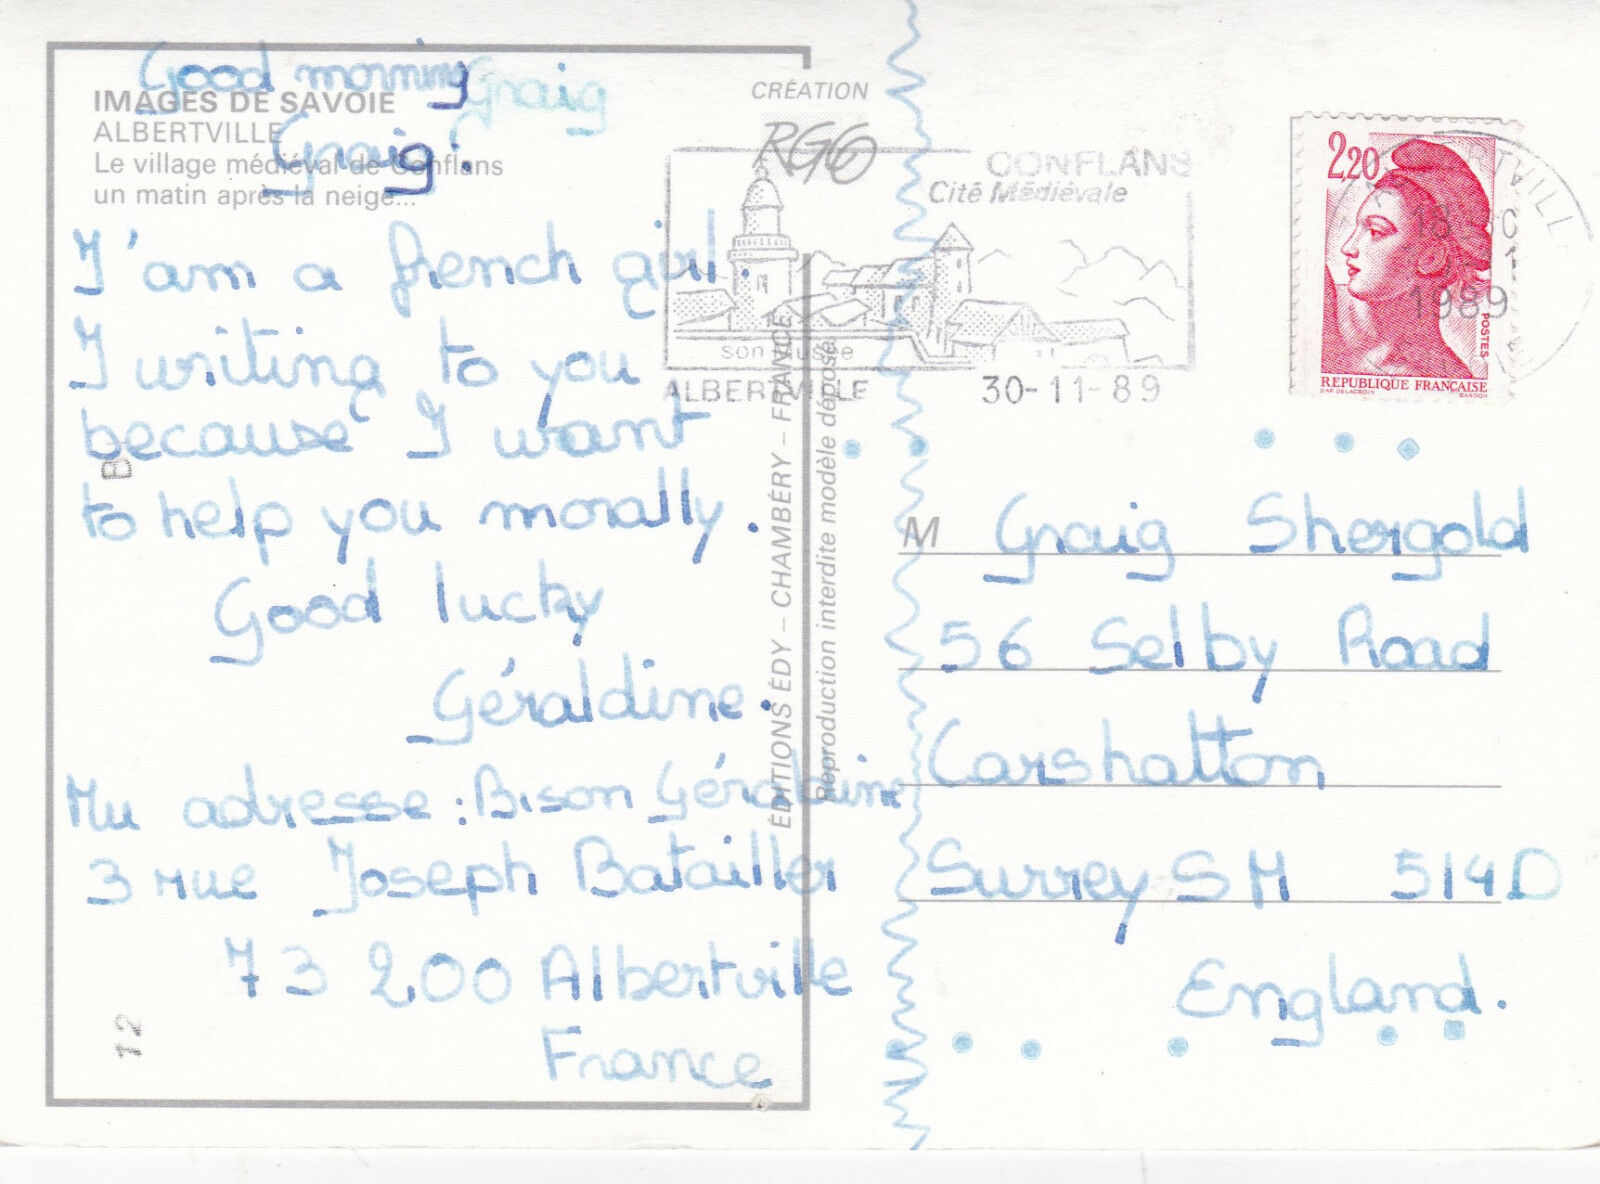 Good morning Graig
IMAGES DE SAVOIE
ALBERTVILLE
Graig.
Le village médiéval de Conflans
un matin après la neige...
I'am a french girl.
I writing to you
because I want
to help you morally.
Good lucky
Géraldine.
My adresse : Bison Géraldine
3 rue Joseph Batailler
73 200 Albertville
France
B
12
CRÉATION
RGG
ÉDITIONS ÉDY – CHAMBÉRY – FRANCE
Reproduction interdite modèle déposé
CONFLANS
Cité Médiévale
son Musée
ALBERTVILLE 30-11-89
2,20
POSTES
REPUBLIQUE FRANÇAISE
D'AP. DELACROIX GANDON
18
1989
M Graig Shergold
56 Selby Road
Carshatton
Surrey SM 514D
England.